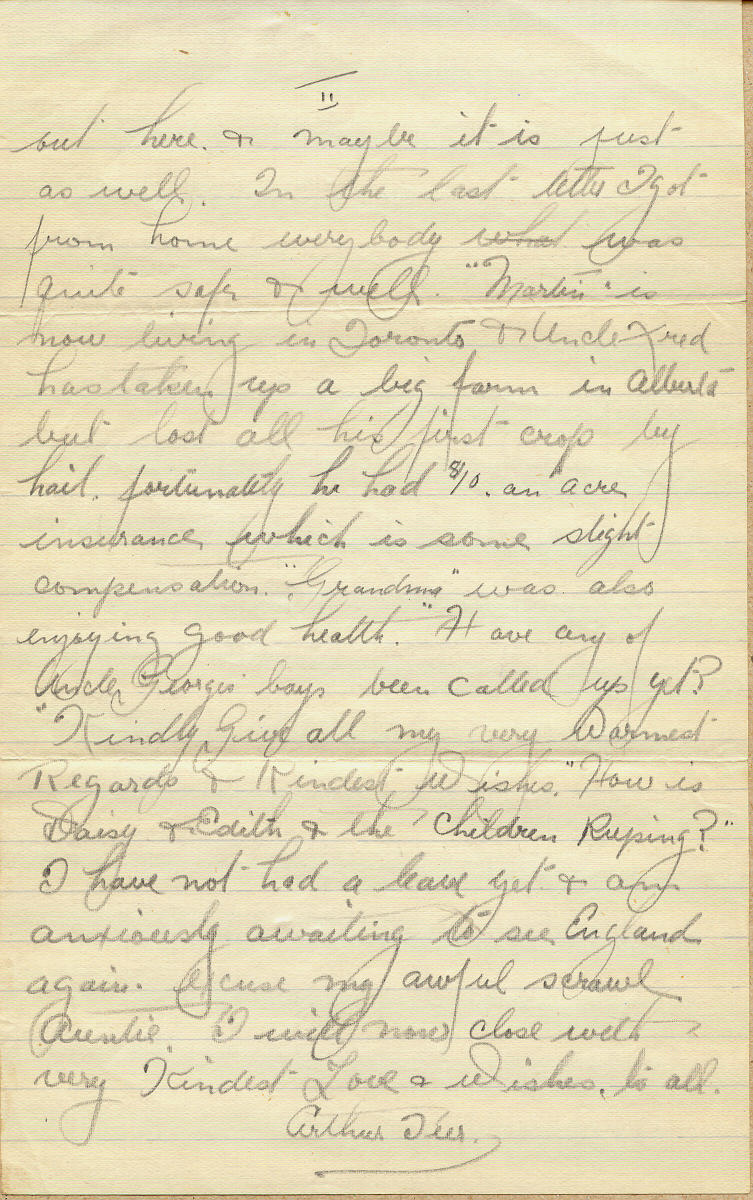 II
out here. & maybe it is just
as well. In the last letter I got
from home everybody what was
quite safe & well. "Martin" is
now living in Toronto & Uncle Fred
has taken up a big farm in Alberta
but lost all his first crop by
hail. fortunately he had an acre
insurance which is some slight
compensation. "Grandma" was also
enjoying good health." Have any of
Uncle Georges boys been called up yet?
"Kindly Give all my very Warmest
Regards & Kindest Wishes." How is
Daisy & Edith & the Children Keeping?"
I have not had a leave yet & am
anxiously awaiting to see England
again. Excuse my awful scrawl
Auntie. I will now close with
very Kindest Love & Wishes. to all.
Arthur